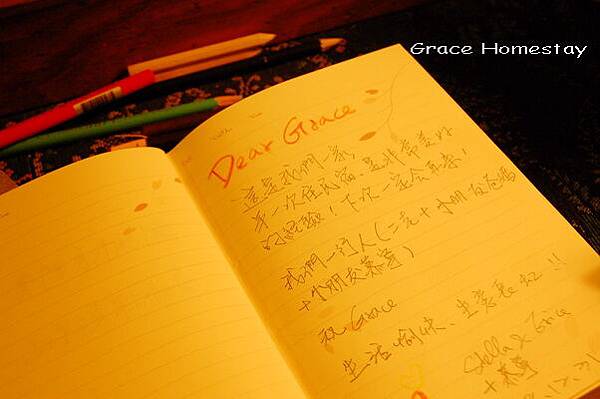 Grace Homestay
Dear Grace
這是我們一家,
第一次住民宿,是非常美好
的經驗!下次一定會再來!
我們一行人(二大+小朋友爸媽
+小朋友慕寧)
祝 Grace
生活愉快、生意長紅!!
Stella & Eric